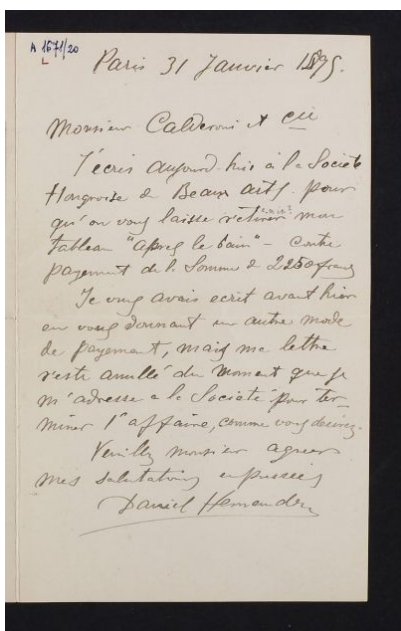 A 1671/20
L
Paris 31 Janvier 1895.
Monsieur Calderoni et Cie
J'écris aujourd hui à la Société
Hongroise de Beaux arts pour
qu'on vous laisse retirer mon
tableau "apres le bain" - contre
payement de la Somme de 2250 francs
Je vous avais ecrit avant hier
en vous donnant un autre mode
de payement, mais ma lettre
reste anullé du moment que je
m'adresse a la Société pour ter-
miner l'affaire, comme vous desirez.
Veuillez monsieur agreer
mes salutations empressées
Daniel Hernandez